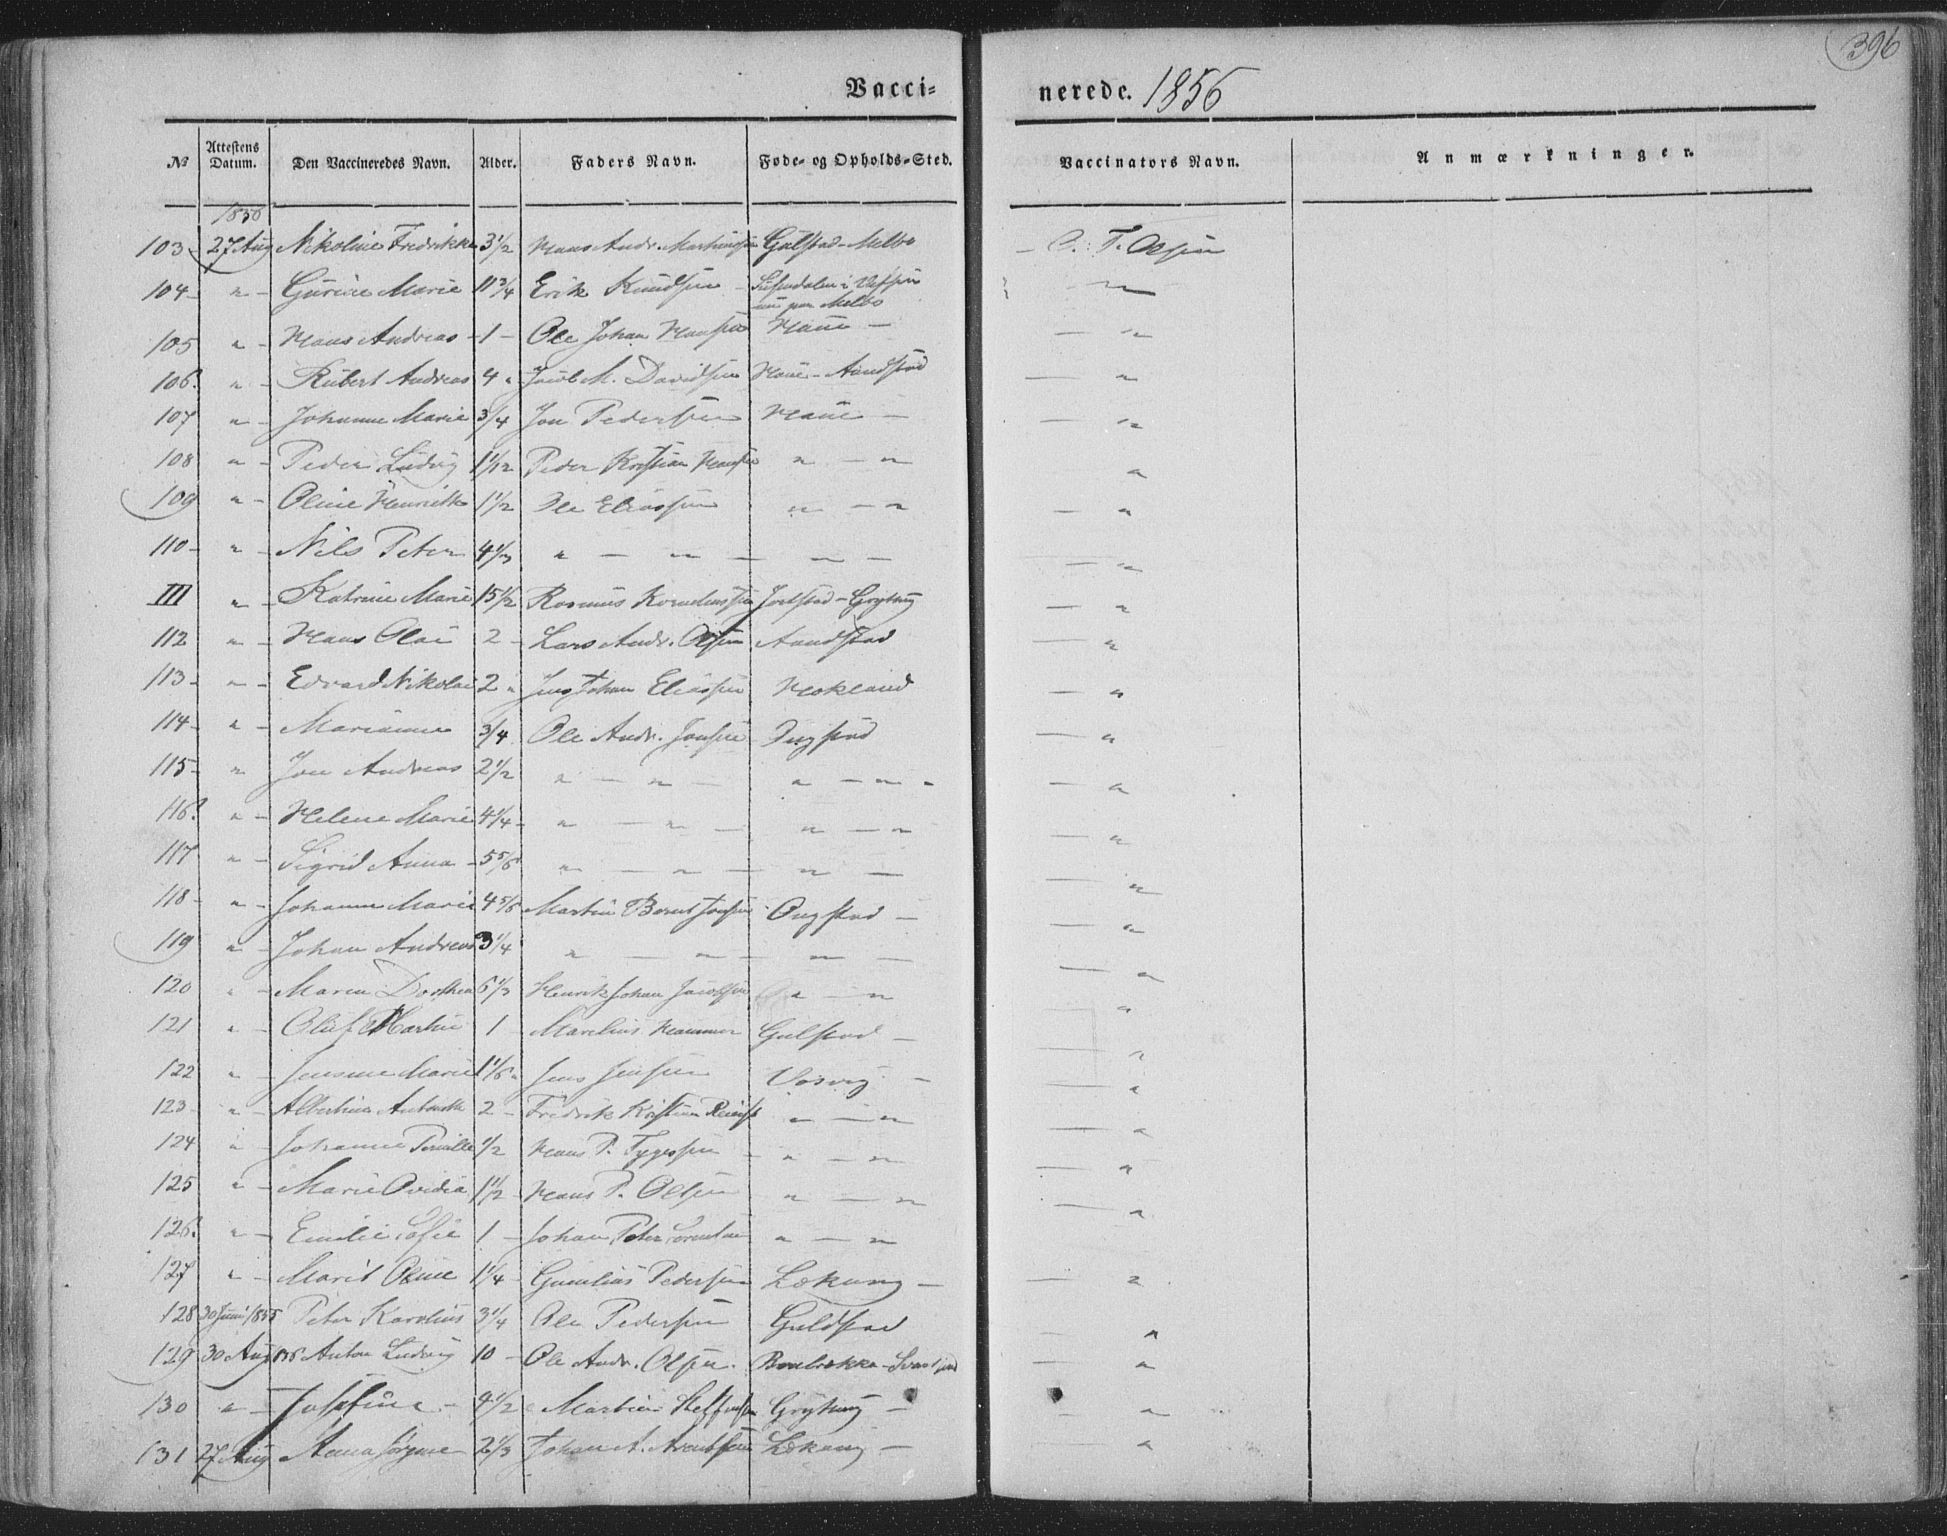 396
Vacci- nerede. 1856
No Attestens Datum. Den Vaccineredes Navn. Alder. Faders Navn. Føde- og Opholds-Sted. Vaccinators Navn. Anmærkninger.
1856
103 27 Aug Nikoline Fredrikke 3 1/2 Hans Andr. Martinussen Gulstad - Melbo O. T. Olsen
104 " Gurine Marie 11 3/4 Erik Knudsen Susendalen i Vefsen
nu paa Melbo "
105 " Hans Andreas 1 Ole Johan Hansen Haue "
106. " Rubert Andreas 4 " Jacob M. Davidsen Haue - Aandstad "
107 " Johanne Marie 3/4 Jon Pedersen Haue "
108 " Peder Ludvig 1 1/12 Peder Kristian Hansen " " "
109 " Oline Henrikke 1 1/2 Ole Eliassen " " "
110 " Nils Peter 4 1/3 " " " " "
111 " Katrine Marie 15 1/2 Rasmus Korneliussen Jortstad - Grytting "
112 " Hans Olai 2 Lars Andr. Olsen Aandstad "
113 " Edvard Nikolai 2 " Jens Johan Eliassen Hokland "
114 " Marianne 3/4 Ole Andr. Jonsen Ongstad "
115 " Jon Andreas 2 1/2 " " " " "
116. " Helene Marie 4 1/4 " " " " "
117 " Sigrid Anna 5 5/6 " " " "
118 " Johanne Marie 4 5/6 Martin Bernt Jonsen Ongstad "
119 " Johan Andreas 3 1/4 " " " "
120 " Maren Dorthea 6 1/3 Henrik Johan Jacobsen " " "
121 " Oluf Martin 1 Marelius Hammer Gulstad "
122 " Jensine Marie 1 1/6 " Jens Jensen "
123 " Albertine Antonette 2 Fredrik Kristian " " "
124 " Johanne Pernille 1/2 Hans P. Tygesen " " "
125 " Marie Ovidia 1 1/2 Hans P. Olsen " " "
126. " Emilie Sofie 1 Johan Peter " " "
127 " Marit Oline 1 1/4 Gunelius Pedersen Lekang "
128 30 Juni 1855 Peter Karolius 3 1/4 Ole Pedersen Guldstad "
129 30 Aug 1856 Anton Ludvig 10 Ole Andr. Olsen. "
130 " Josefine 4 1/2 Martin Steffensen Grytting "
131 27 Aug Anna Jørgine 2 1/3 Johan A. Arentsen Lekang "